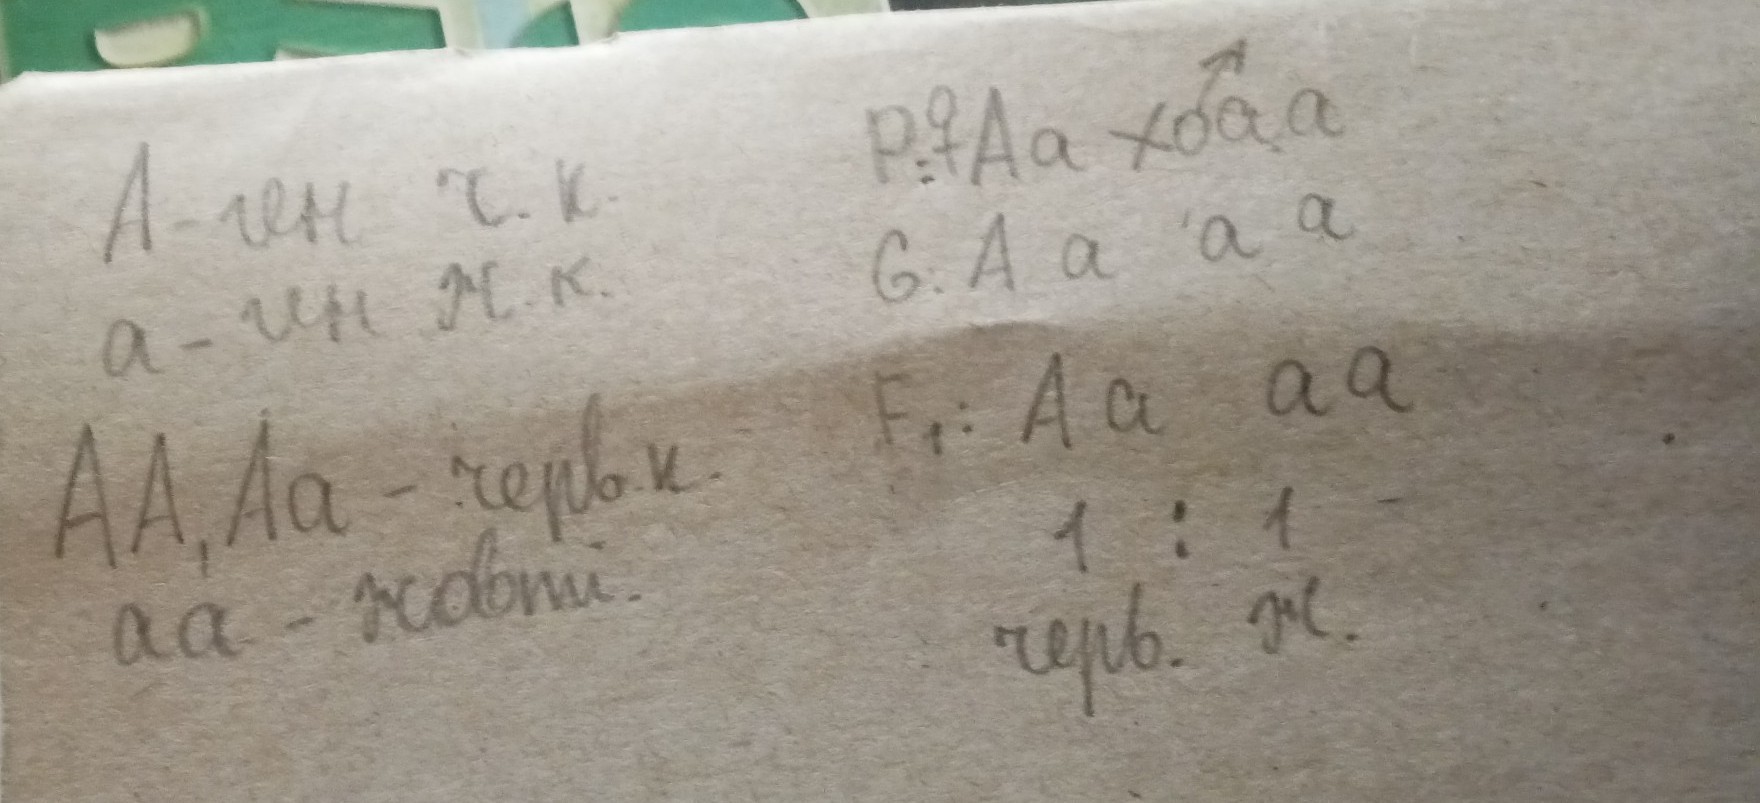 А-ген ч. к.
а-ген ж. к.
АА, Аа - черв. к.
аа - жовті.
P: ♀Аа x ♂аа
G: А а а а
F₁: Аа аа
1 : 1
черв. ж.